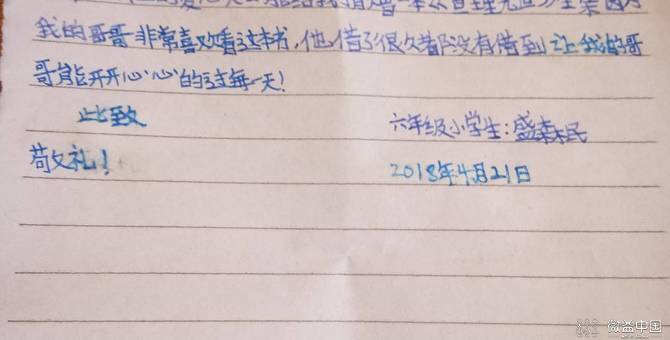 我的哥哥非常喜欢看这本书，他借了很久都没有借到让我的哥
哥能开开心心的过每一天！
此致
六年级小学生：盛森民
敬礼！
2018年4月21日
微益中国